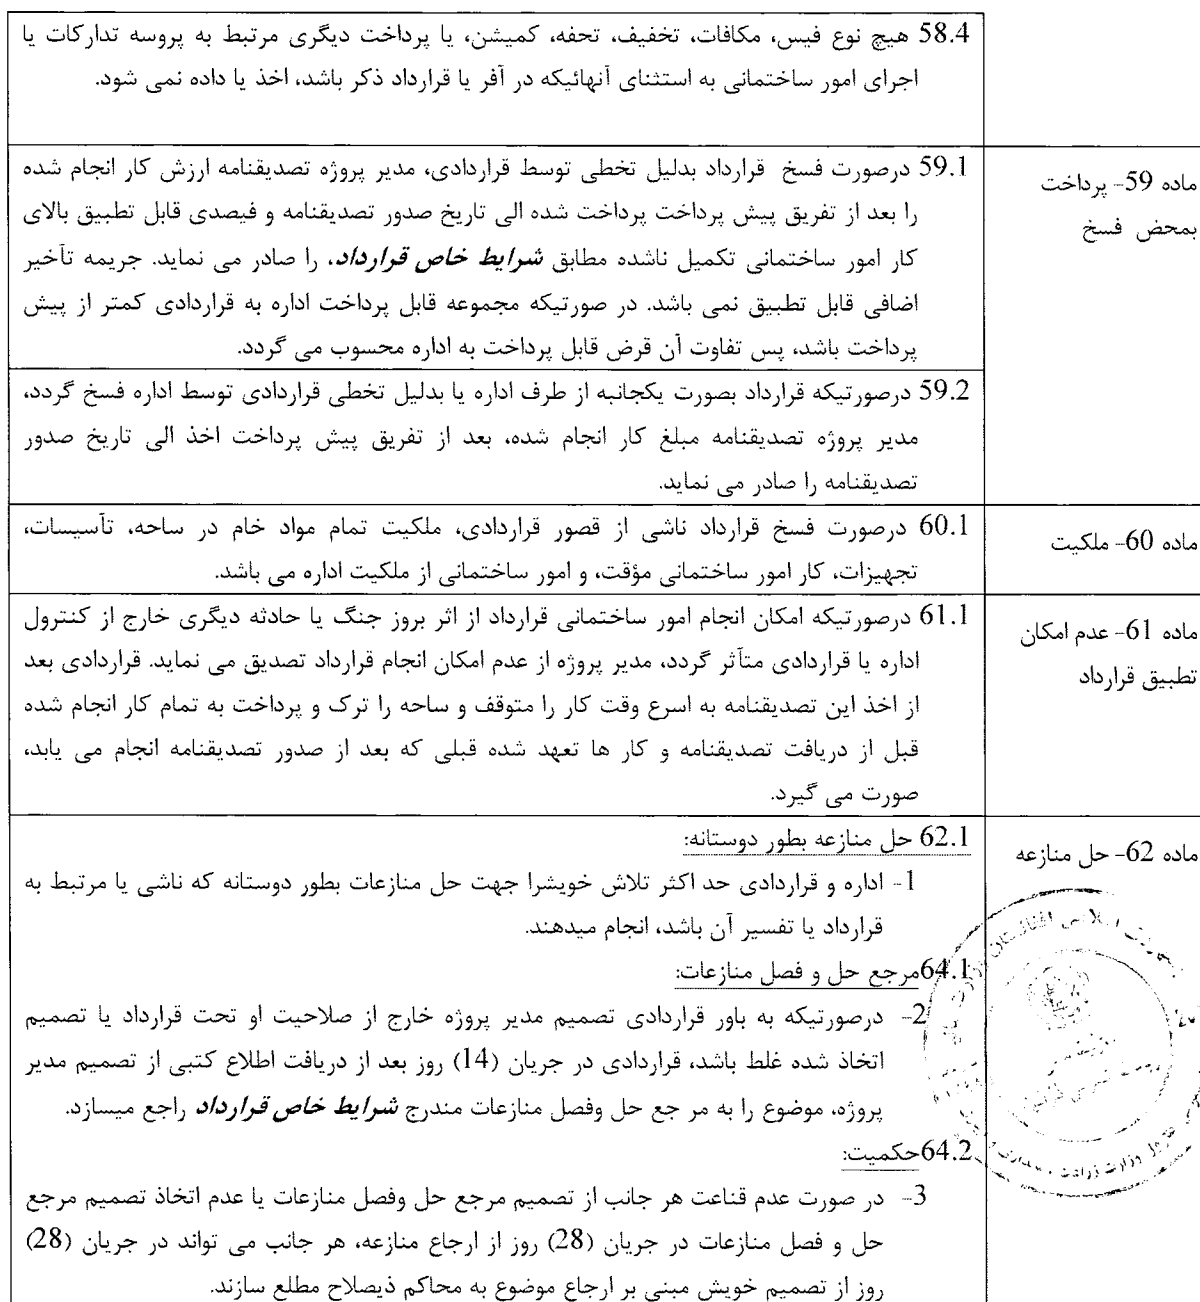 58.4 هیچ نوع فیس، مکافات، تخفیف، تحفه، کمیشن، یا پرداخت دیگری مرتبط به پروسه تدارکات یا
اجرای امور ساختمانی به استثنای آنهائیکه در آفر یا قرارداد ذکر باشد، اخذ یا داده نمی شود.
ماده 59- پرداخت
بمحض فسخ
59.1 درصورت فسخ قرارداد بدلیل تخطی توسط قراردادی، مدیر پروژه تصدیقنامه ارزش کار انجام شده
را بعد از تفریق پیش پرداخت پرداخت شده الی تاریخ صدور تصدیقنامه و فیصدی قابل تطبیق بالای
کار امور ساختمانی تکمیل ناشده مطابق شرایط خاص قرارداد، را صادر می نماید. جریمه تأخیر
اضافی قابل تطبیق نمی باشد. در صورتیکه مجموعه قابل پرداخت اداره به قراردادی کمتر از پیش
پرداخت باشد، پس تفاوت آن قرض قابل پرداخت به اداره محسوب می گردد.
59.2 درصورتیکه قرارداد بصورت یکجانبه از طرف اداره یا بدلیل تخطی قراردادی توسط اداره فسخ گردد،
مدیر پروژه تصدیقنامه مبلغ کار انجام شده، بعد از تفریق پیش پرداخت اخذ الی تاریخ صدور
تصدیقنامه را صادر می نماید.
ماده 60- ملکیت
60.1 درصورت فسخ قرارداد ناشی از قصور قراردادی، ملکیت تمام مواد خام در ساحه، تأسیسات،
تجهیزات، کار امور ساختمانی مؤقت، و امور ساختمانی از ملکیت اداره می باشد.
ماده 61- عدم امکان
تطبیق قرارداد
61.1 درصورتیکه امکان انجام امور ساختمانی قرارداد از اثر بروز جنگ یا حادثه دیگری خارج از کنترول
اداره یا قراردادی متأثر گردد، مدیر پروژه از عدم امکان انجام قرارداد تصدیق می نماید. قراردادی بعد
از اخذ این تصدیقنامه به اسرع وقت کار را متوقف و ساحه را ترک و پرداخت به تمام کار انجام شده
قبل از دریافت تصدیقنامه و کار ها تعهد شده قبلی که بعد از صدور تصدیقنامه انجام می یابد،
صورت می گیرد.
ماده 62- حل منازعه
62.1 حل منازعه بطور دوستانه:
1- اداره و قراردادی حد اکثر تلاش خویشرا جهت حل منازعات بطور دوستانه که ناشی یا مرتبط به
قرارداد یا تفسیر آن باشد، انجام میدهند.
64.1مرجع حل و فصل منازعات:
2- درصورتیکه به باور قراردادی تصمیم مدیر پروژه خارج از صلاحیت او تحت قرارداد یا تصمیم
اتخاذ شده غلط باشد، قراردادی در جریان (14) روز بعد از دریافت اطلاع کتبی از تصمیم مدیر
پروژه، موضوع را به مر جع حل وفصل منازعات مندرج شرایط خاص قرارداد راجع میسازد.
64.2حکمیت:
3- در صورت عدم قناعت هر جانب از تصمیم مرجع حل وفصل منازعات یا عدم اتخاذ تصمیم مرجع
حل و فصل منازعات در جریان (28) روز از ارجاع منازعه، هر جانب می تواند در جریان (28)
روز از تصمیم خویش مبنی بر ارجاع موضوع به محاکم ذیصلاح مطلع سازند.